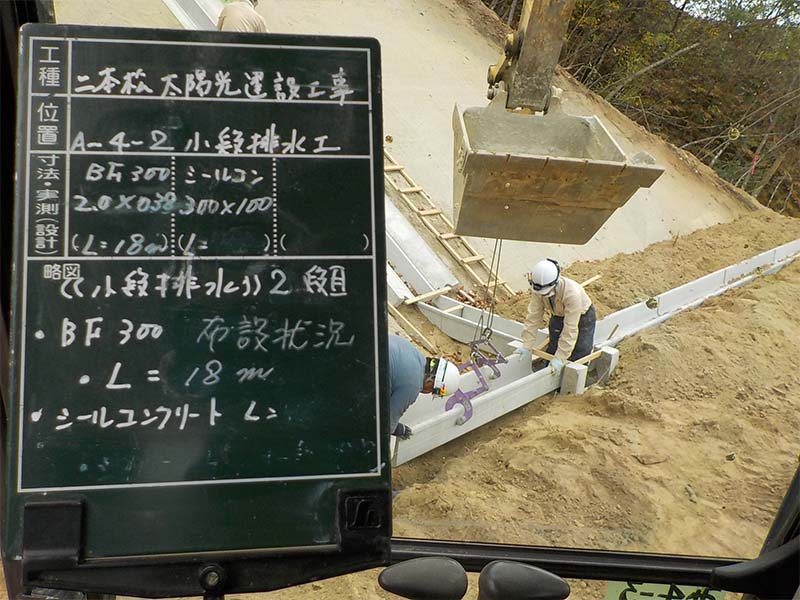 工種 二本松 太陽光建設工事
位置 A-4-2 小段排水工
寸法・実測(設計) BF300 シールコン
2.0×038 300×100
(L=18m) (L= ) ( )
略図 《小段排水》2段目
・BF300 布設状況
・L=18m
・シールコンクリート L=